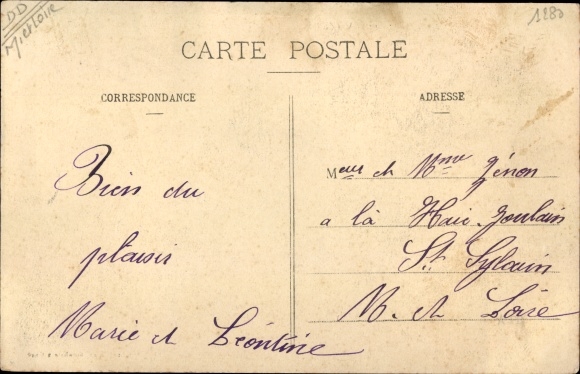 DD
M et Loire
1280
CARTE POSTALE
CORRESPONDANCE
ADRESSE
Bien du
plaisir
Marie et Léontine
Meur et Mme Zénon
a la Haie-Joulain
St Sylvain
M. et Loire